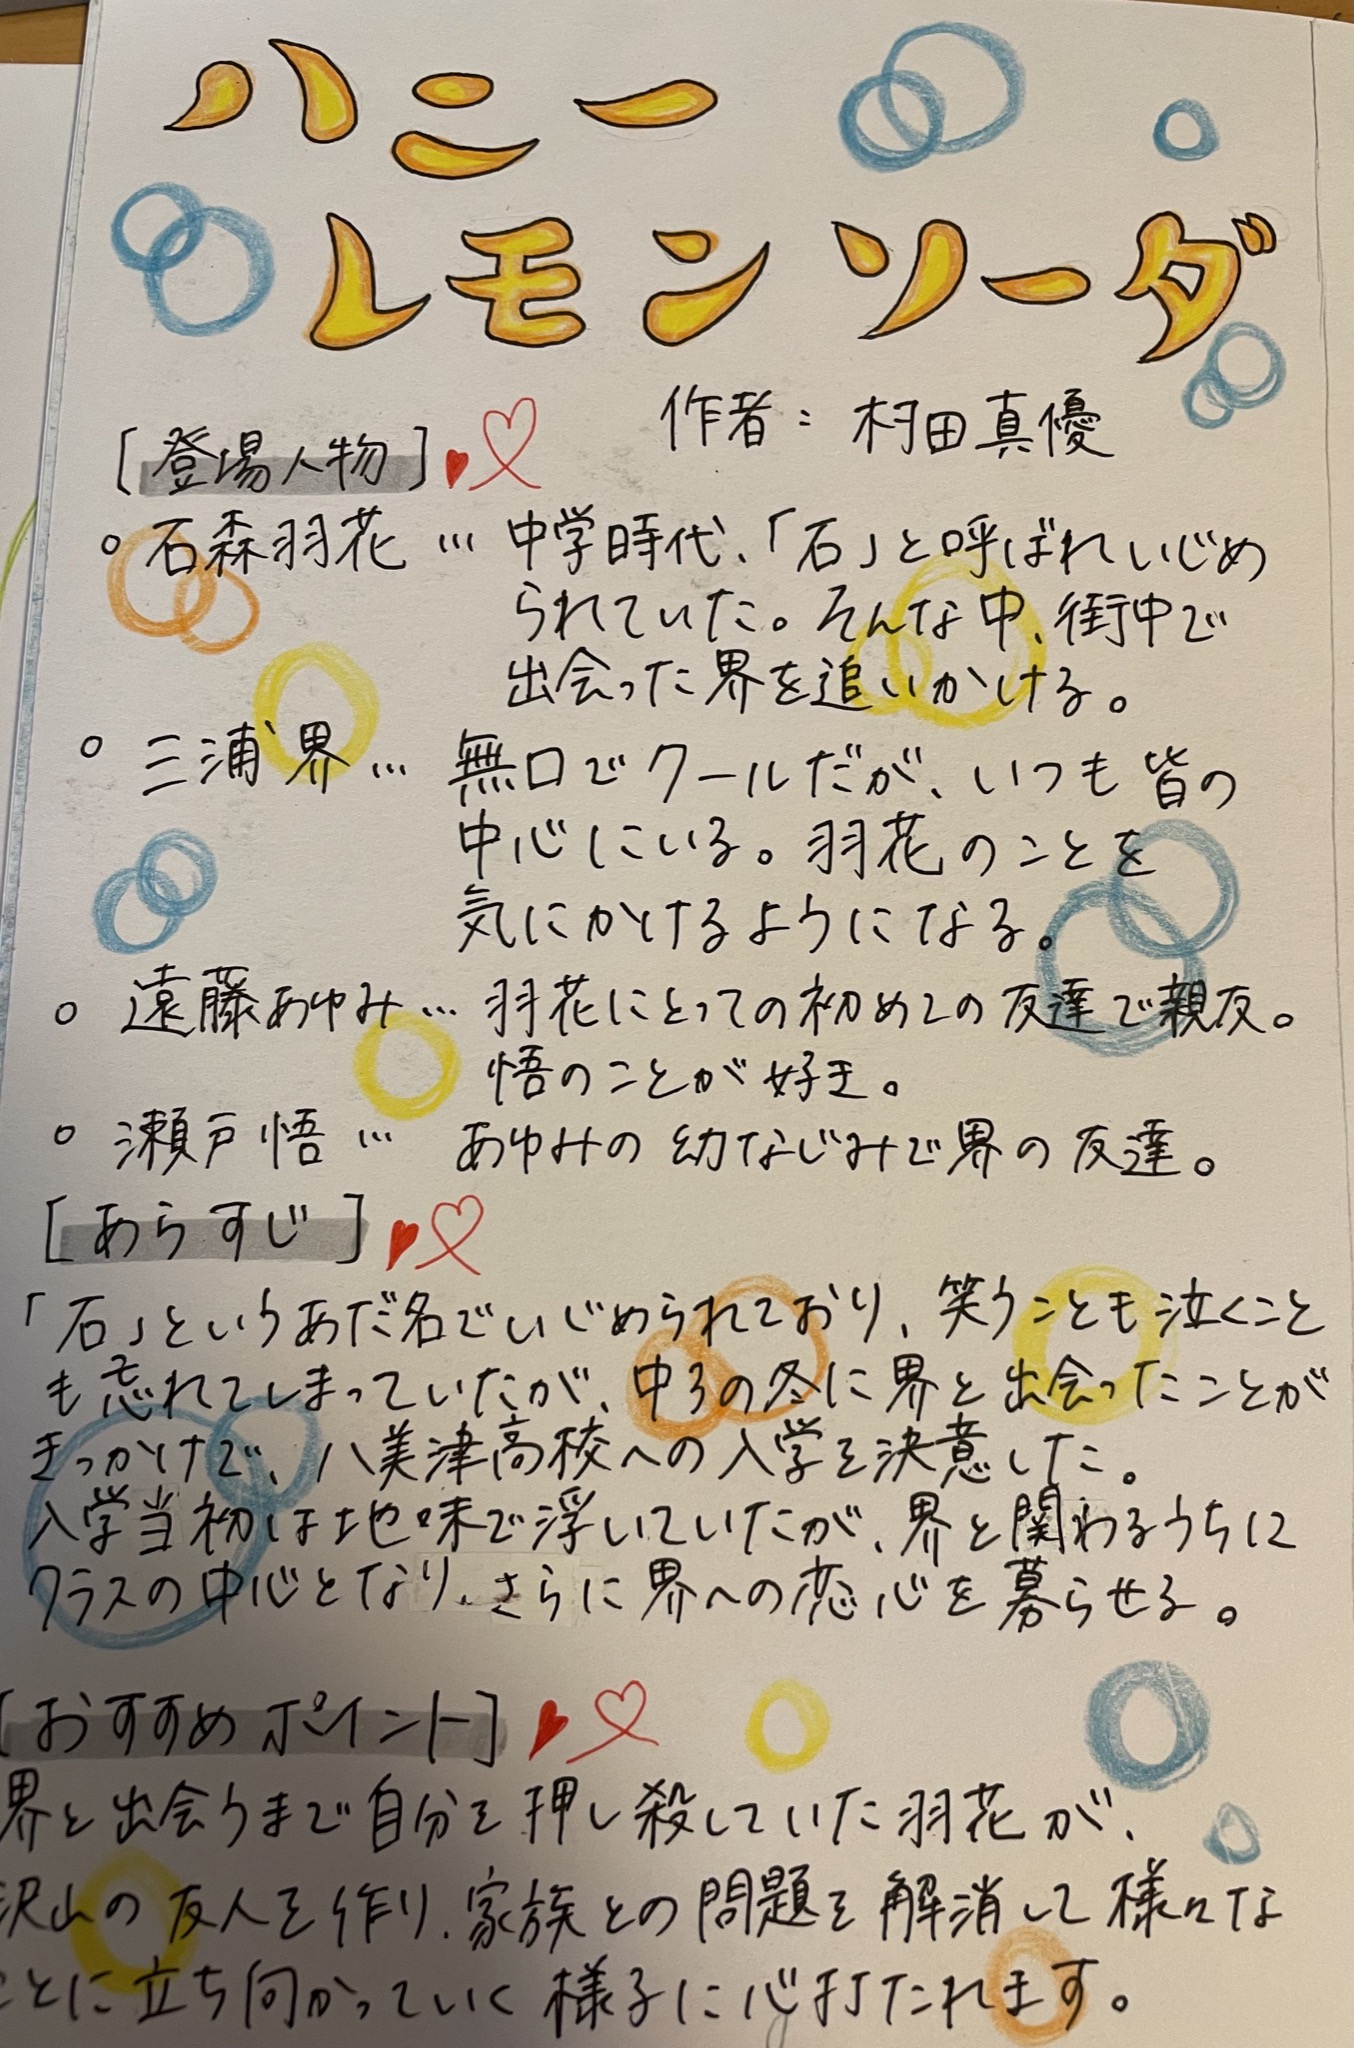 ハニー
レモンソーダ
作者:村田真優
[登場人物]
○石森羽花…中学時代、「石」と呼ばれいじめ
られていた。そんな中、街中で
出会った界を追いかける。
○三浦界…無口でクールだが、いつも皆の
中心にいる。羽花のことを
気にかけるようになる。
○遠藤あゆみ…羽花にとっての初めての友達で親友。
悟のことが好き。
○瀬戸悟…あゆみの幼なじみで界の友達。
[あらすじ]
「石」というあだ名でいじめられており、笑うことも泣くこと
も忘れてしまっていたが、中3の冬に界と出会ったことが
きっかけで、八美津高校への入学を決意した。
入学当初は地味で浮いていたが、界と関わるうちに
クラスの中心となり、さらに界への恋心を募らせる。
[おすすめポイント]
界と出会うまで自分を押し殺していた羽花が、
沢山の友人を作り、家族との問題を解消して様々な
ことに立ち向かっていく様子に心打たれます。